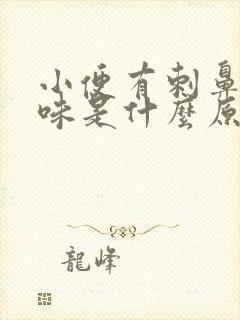 小便有刺鼻
味是什麼原
龍峰